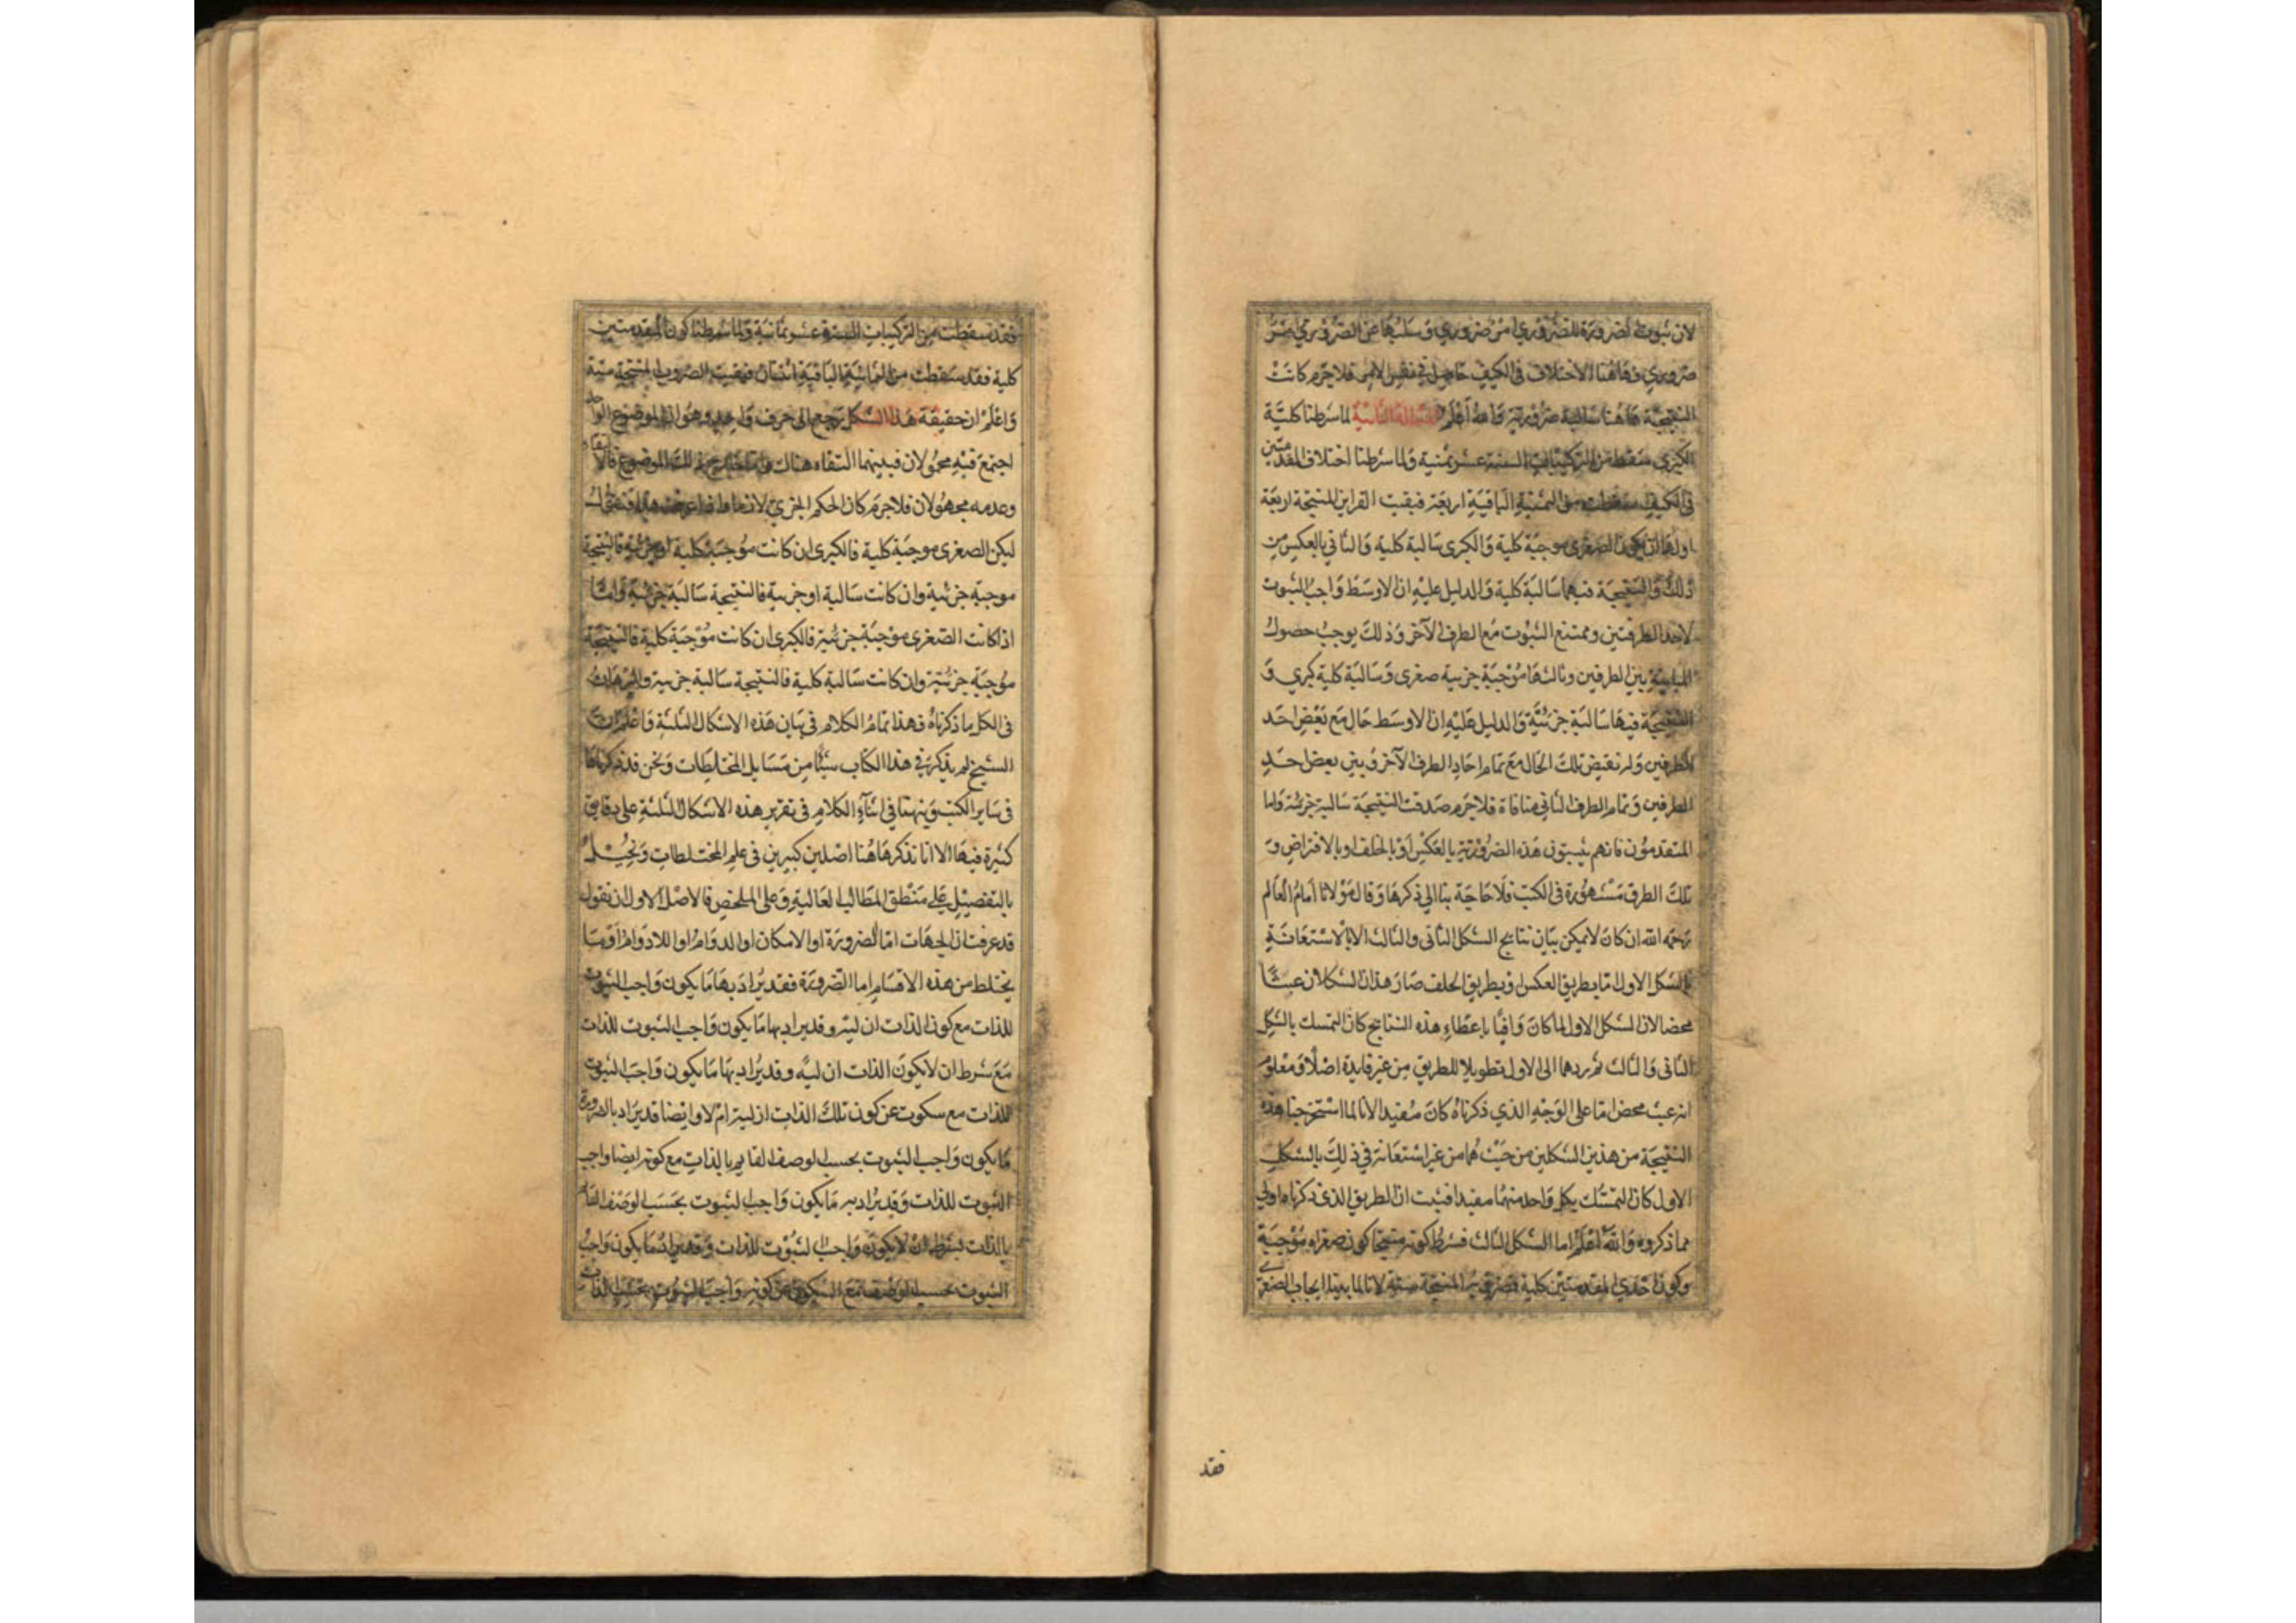 لان ثبوت الضرورة للضروري امر ضروري وسلبها عن الضروري
ضروري فهاهنا الاختلاف في الكيف حاصل في نفس الامر فلا جرم كانت
النتيجة هاهنا سالبة ضرورية والله أعلم المسألة الثانية لما شرطنا كلية
الكبري سقط من التركيبات الستة عشر ثمنية ولما شرطنا اختلاف المقدمتين
في الكيف سقطت من الثمنية الباقية اربعة فبقيت القراين المنتجة اربعة
اولها ان يكون الصغرى موجبة كلية والكبرى سالبة كلية والثاني بالعكس من
ذلك والنتيجة فيهما سالبة كلية والدليل عليه ان الاوسط واجب الثبوت
لاحد الطرفين وممتنع الثبوت مع الطرف الآخر وذلك يوجب حصول
المباينة بين الطرفين وثالثها موجبة جزيية صغرى وسالبة كلية كبري و
النتيجة فيها سالبة جزئية والدليل عليه ان الاوسط حال مع بعض احد
الطرفين ولم تقتض تلك الحالة مع تمام احاد الطرف الآخر وبين بعض احد
الطرفين وتمام الطرف الثاني منافاة فلا جرم صدقت النتيجة سالبة جزئية واما
المتقدمون فانهم يثبتون هذه الضروريه بالعكس او بالخلف او بالافتراض و
تلك الطرق مشهورة في الكتب فلا حاجة بنا الي ذكرها وقال مولانا امام العالم
رحمه الله ان كان لا يمكن بيان نتايج الشكل الثاني والثالث الا بالاستعانة
بالشكل الاول اما بطريق العكس او بطريق الخلف صار هذان الشكلان عبثا
محضا لان الشكل الاول لما كان وافيا باعطاء هذه النتايج كان التمسك بالشكل
الثاني والثالث ثم ردهما الى الاول تطويلا للطريق من غير فايدة اصلا ومعلوم
انه عبث محض اما على الوجه الذي ذكرناه كان مفيدا لانا لما استخرجنا هذه
النتيجة من هذين الشكلين من حيث هما من غير استعانة في ذلك بالشكل
الاول كان التمسك بكل واحد منهما مفيدا فثبت ان الطريق الذي ذكرناه اولي
مما ذكروه والله اعلم اما الشكل الثالث فشرط كونه منتجا كون صغراه موجبة
وكون احدي المقدمتين كلية فضروبه المنتجة ستة لانا لما بينا ايجاب الصغرى
فقد
فقد سقطت من التركيبات الستة عشر ثمانية ولما شرطنا كون المقدمتين
كلية فقد سقطت من الثمانية الباقية اثنتان فبقيت الضروب المنتجة ستة
واعلم ان حقيقة هذا الشكل يرجع الى حرف واحد وهو ان الموضوع الواحد
اجتمع فيه محمولان فبينهما التقاء هناك ذلك الموضوع فالالتقاء
وعدمه مجهولان فلا جرم كان الحكم الجزي لازما واذا عرفت هذا فنقول
ليكن الصغرى موجبة كلية فالكبرى ان كانت موجبة كلية او جزئية فالنتيجة
موجبة جزئية وان كانت سالبة او جزيية فالنتيجة سالبة جزئية وامَّا
اذا كانت الصغرى موجبة جزئية فالكبرى ان كانت موجبة كلية فالنتيجة
موجبة جزئية وان كانت سالبة كلية فالنتيجة سالبة جزيية والبرهان
في الكل ما ذكرناه فهذا تمام الكلام في بيان هذه الاشكال الثلثة واعلم ان
الشيخ لم يذكر في هذا الكتاب شيئا من مسايل المختلطات ونحن قد ذكرناها
في ساير الكتب ونبهنا في اثناء الكلام في تقرير هذه الاشكال الثلثة على دقايق
كثيرة فيها الا انا نذكر هاهنا اصلين كبيرين في علم المختلطات ونحيل
بالتفصيل على منطق المطالب العالية وعلى الملخص فالاصل الاول ان نقول
قد عرفت ان الجهات اما الضرورة او الامكان او الدوام او اللادوام او ما
يختلط من هذه الاقسام اما الضرورة فقد يراد بها ما يكون واجب الثبوت
للذات مع كون الذات ان ليه وقد يراد بها ما يكون واجب الثبوت للذات
مع شرط ان لا يكون الذات ان ليه وقد يراد بها ما يكون واجب الثبوت
للذات مع سكوت عن كون تلك الذات ازلية ام لا وايضا قد يراد بالضرورة
ما يكون واجب الثبوت بحسب الوصف القايم بالذات مع كونه ايضا واجب
الثبوت للذات وقد يراد به ما يكون واجب الثبوت بحسب الوصف القايم
بالذات بشرط ان لا يكون واجب الثبوت للذات وقد يراد ما يكون واجب
الثبوت بحسب الوصف مع السكوت عن كونه واجب الثبوت بحسب الذات